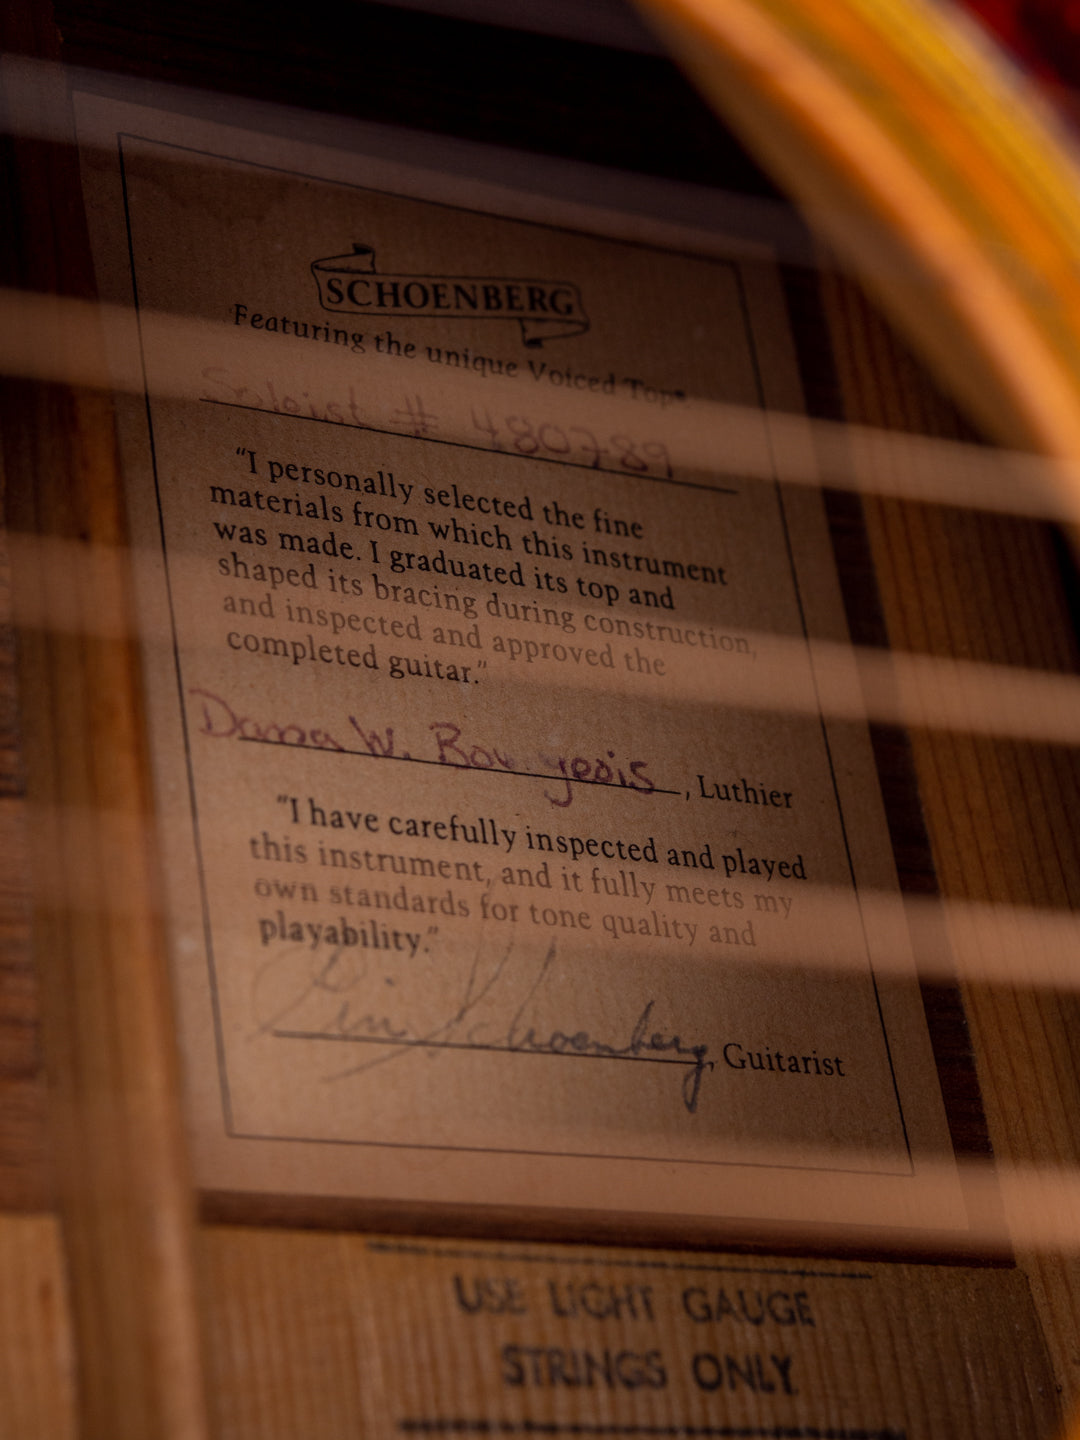 SCHOENBERG
Featuring the unique Voiced Top®
Soloist # 480789
“I personally selected the fine
materials from which this instrument
was made. I graduated its top and
shaped its bracing during construction,
and inspected and approved the
completed guitar.”
Dana W. Bourgeois, Luthier
“I have carefully inspected and played
this instrument, and it fully meets my
own standards for tone quality and
playability.”
Eric Schoenberg, Guitarist
USE LIGHT GAUGE
STRINGS ONLY